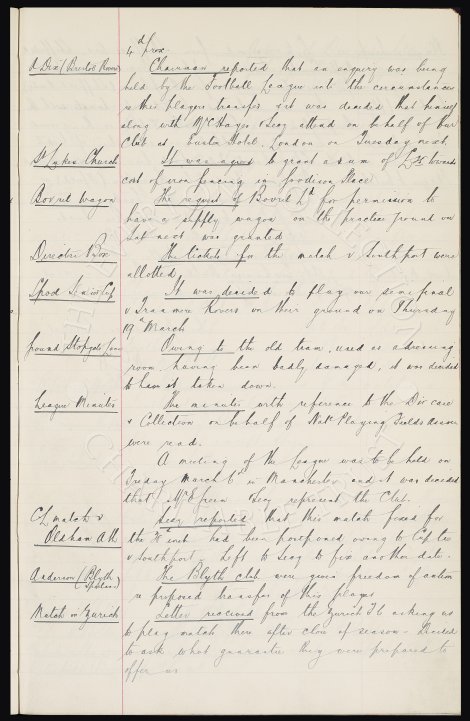 4th prox.
A Dix (Bristol Rovers) Chairman reported that an enquiry was being
held by the Football League into the circumstances
re this players transfer & it was decided that himself
along with Mr & Secy attend on behalf of our
Club at Euston Hotel, London on Tuesday next.
St Lukes Church It was agreed to grant a sum of £25 towards
cost of iron fencing in Goodison Place
Bovril Wagon The request of Bovril Ld for permission to
have a supply wagon on the practice ground on
Sat next was granted
Directors Box The tickets for the match v Southport were
allotted.
Lpool Senior Cup It was decided to play our semi final
v Tranmere Rovers on their ground on Thursday
19th March
Ground Stopgate Lane Owing to the old team, used as a dressing
room having been badly damaged, it was decided
to have it taken down.
League Minutes The minutes with reference to the Dix case
& Collection on behalf of Natl Playing Fields Assocn
were read.
A meeting of the League was to be held on
Friday March 6th in Manchester and it was decided
that Mr Green & Secy represent the Club.
CL match v Oldham Ath Secy reported that this match fixed for
the inst had been postponed owing to Cup tie
v Southport. Left to Secy to fix another date.
Anderson (Blyth Spartans) The Blyth club were given freedom of action
re proposed transfer of this player
Match in Zurich Letter received from the Zurich F C asking us
to play match there after close of season. Decided
to ask what guarantee they were prepared to
offer us